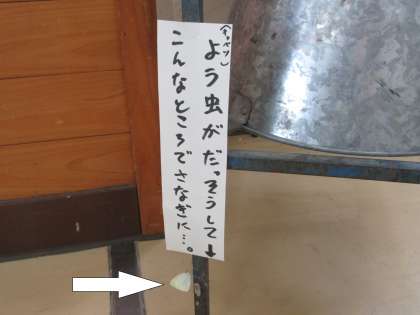 (キャベツ)
よう虫がだっそうして↓
こんなところでさなぎに…。